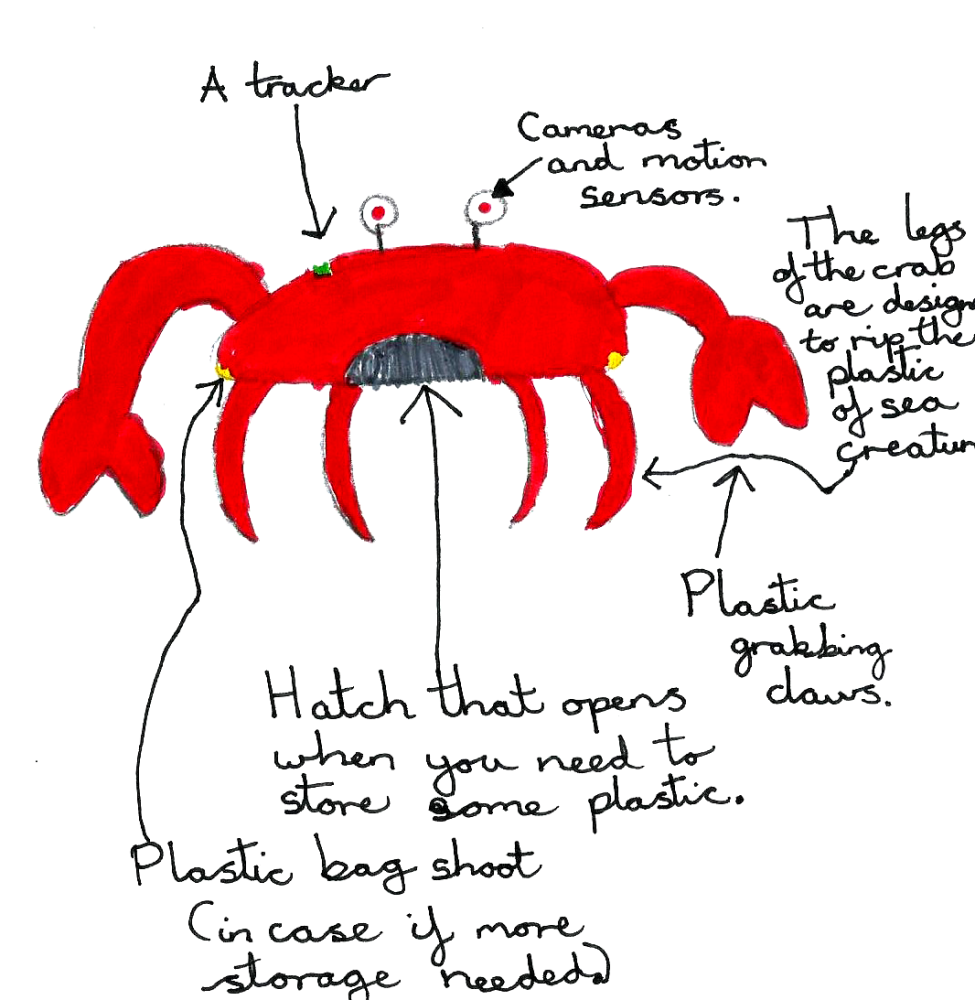 A tracker
Cameras
and motion
sensors.
The legs
of the crab
are design
to rip the
plastic
of sea
creatur
Plastic
grabbing
claws.
Hatch that opens
when you need to
store some plastic.
Plastic bag shoot
(in case if more
storage needed.)